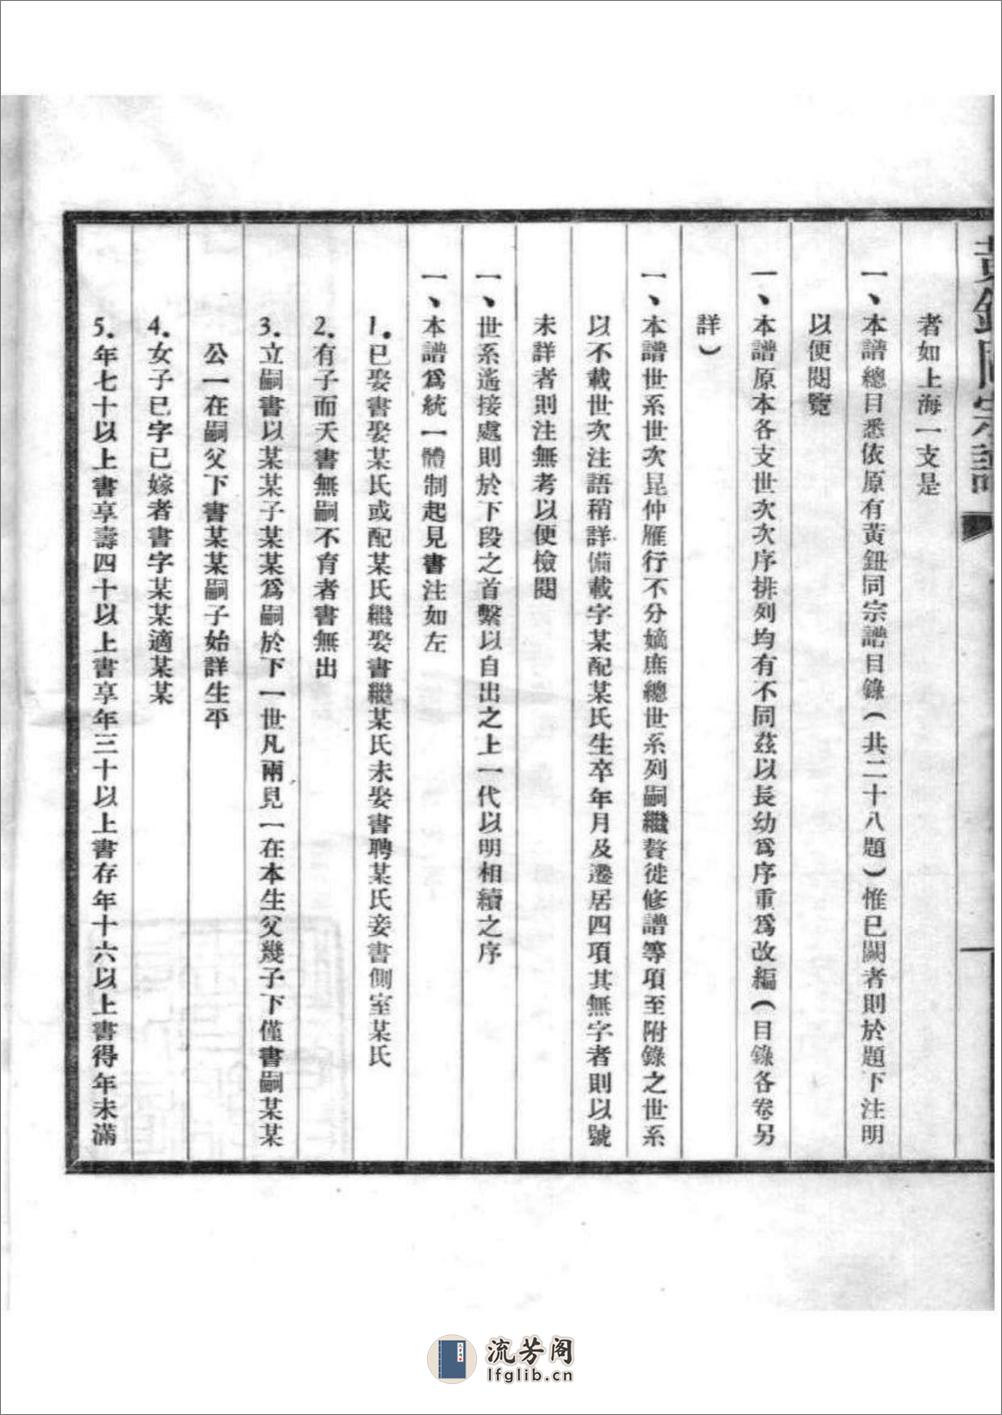 黃鈕同宗譜
者如上海一支是
一、本譜總目悉依原有黃鈕同宗譜目錄（共二十八題）惟已闕者則於題下注明
以便閱覽
一、本譜原本各支世次次序排列均有不同茲以長幼爲序重爲改編（目錄各卷另
詳）
一、本譜世系世次昆仲雁行不分嫡庶總世系列嗣繼贅徙修譜等項至附錄之世系
以不載世次注語稍詳備載字某配某氏生卒年月及遷居四項其無字者則以號
未詳者則注無考以便檢閱
一、世系遙接處則於下段之首繫以自出之上一代以明相續之序
一、本譜爲統一體制起見書注如左
1．已娶書娶某氏或配某氏繼娶書繼某氏未娶書聘某氏妾書側室某氏
2．有子而夭書無嗣不育者書無出
3．立嗣書以某某子某某爲嗣於下一世凡兩見一在本生父幾子下僅書嗣某某
公一在嗣父下書某某嗣子始詳生平
4．女子已字已嫁者書字某某適某某
5．年七十以上書享壽四十以上書享年三十以上書存年十六以上書得年未滿
流芳阁
lfglib.cn